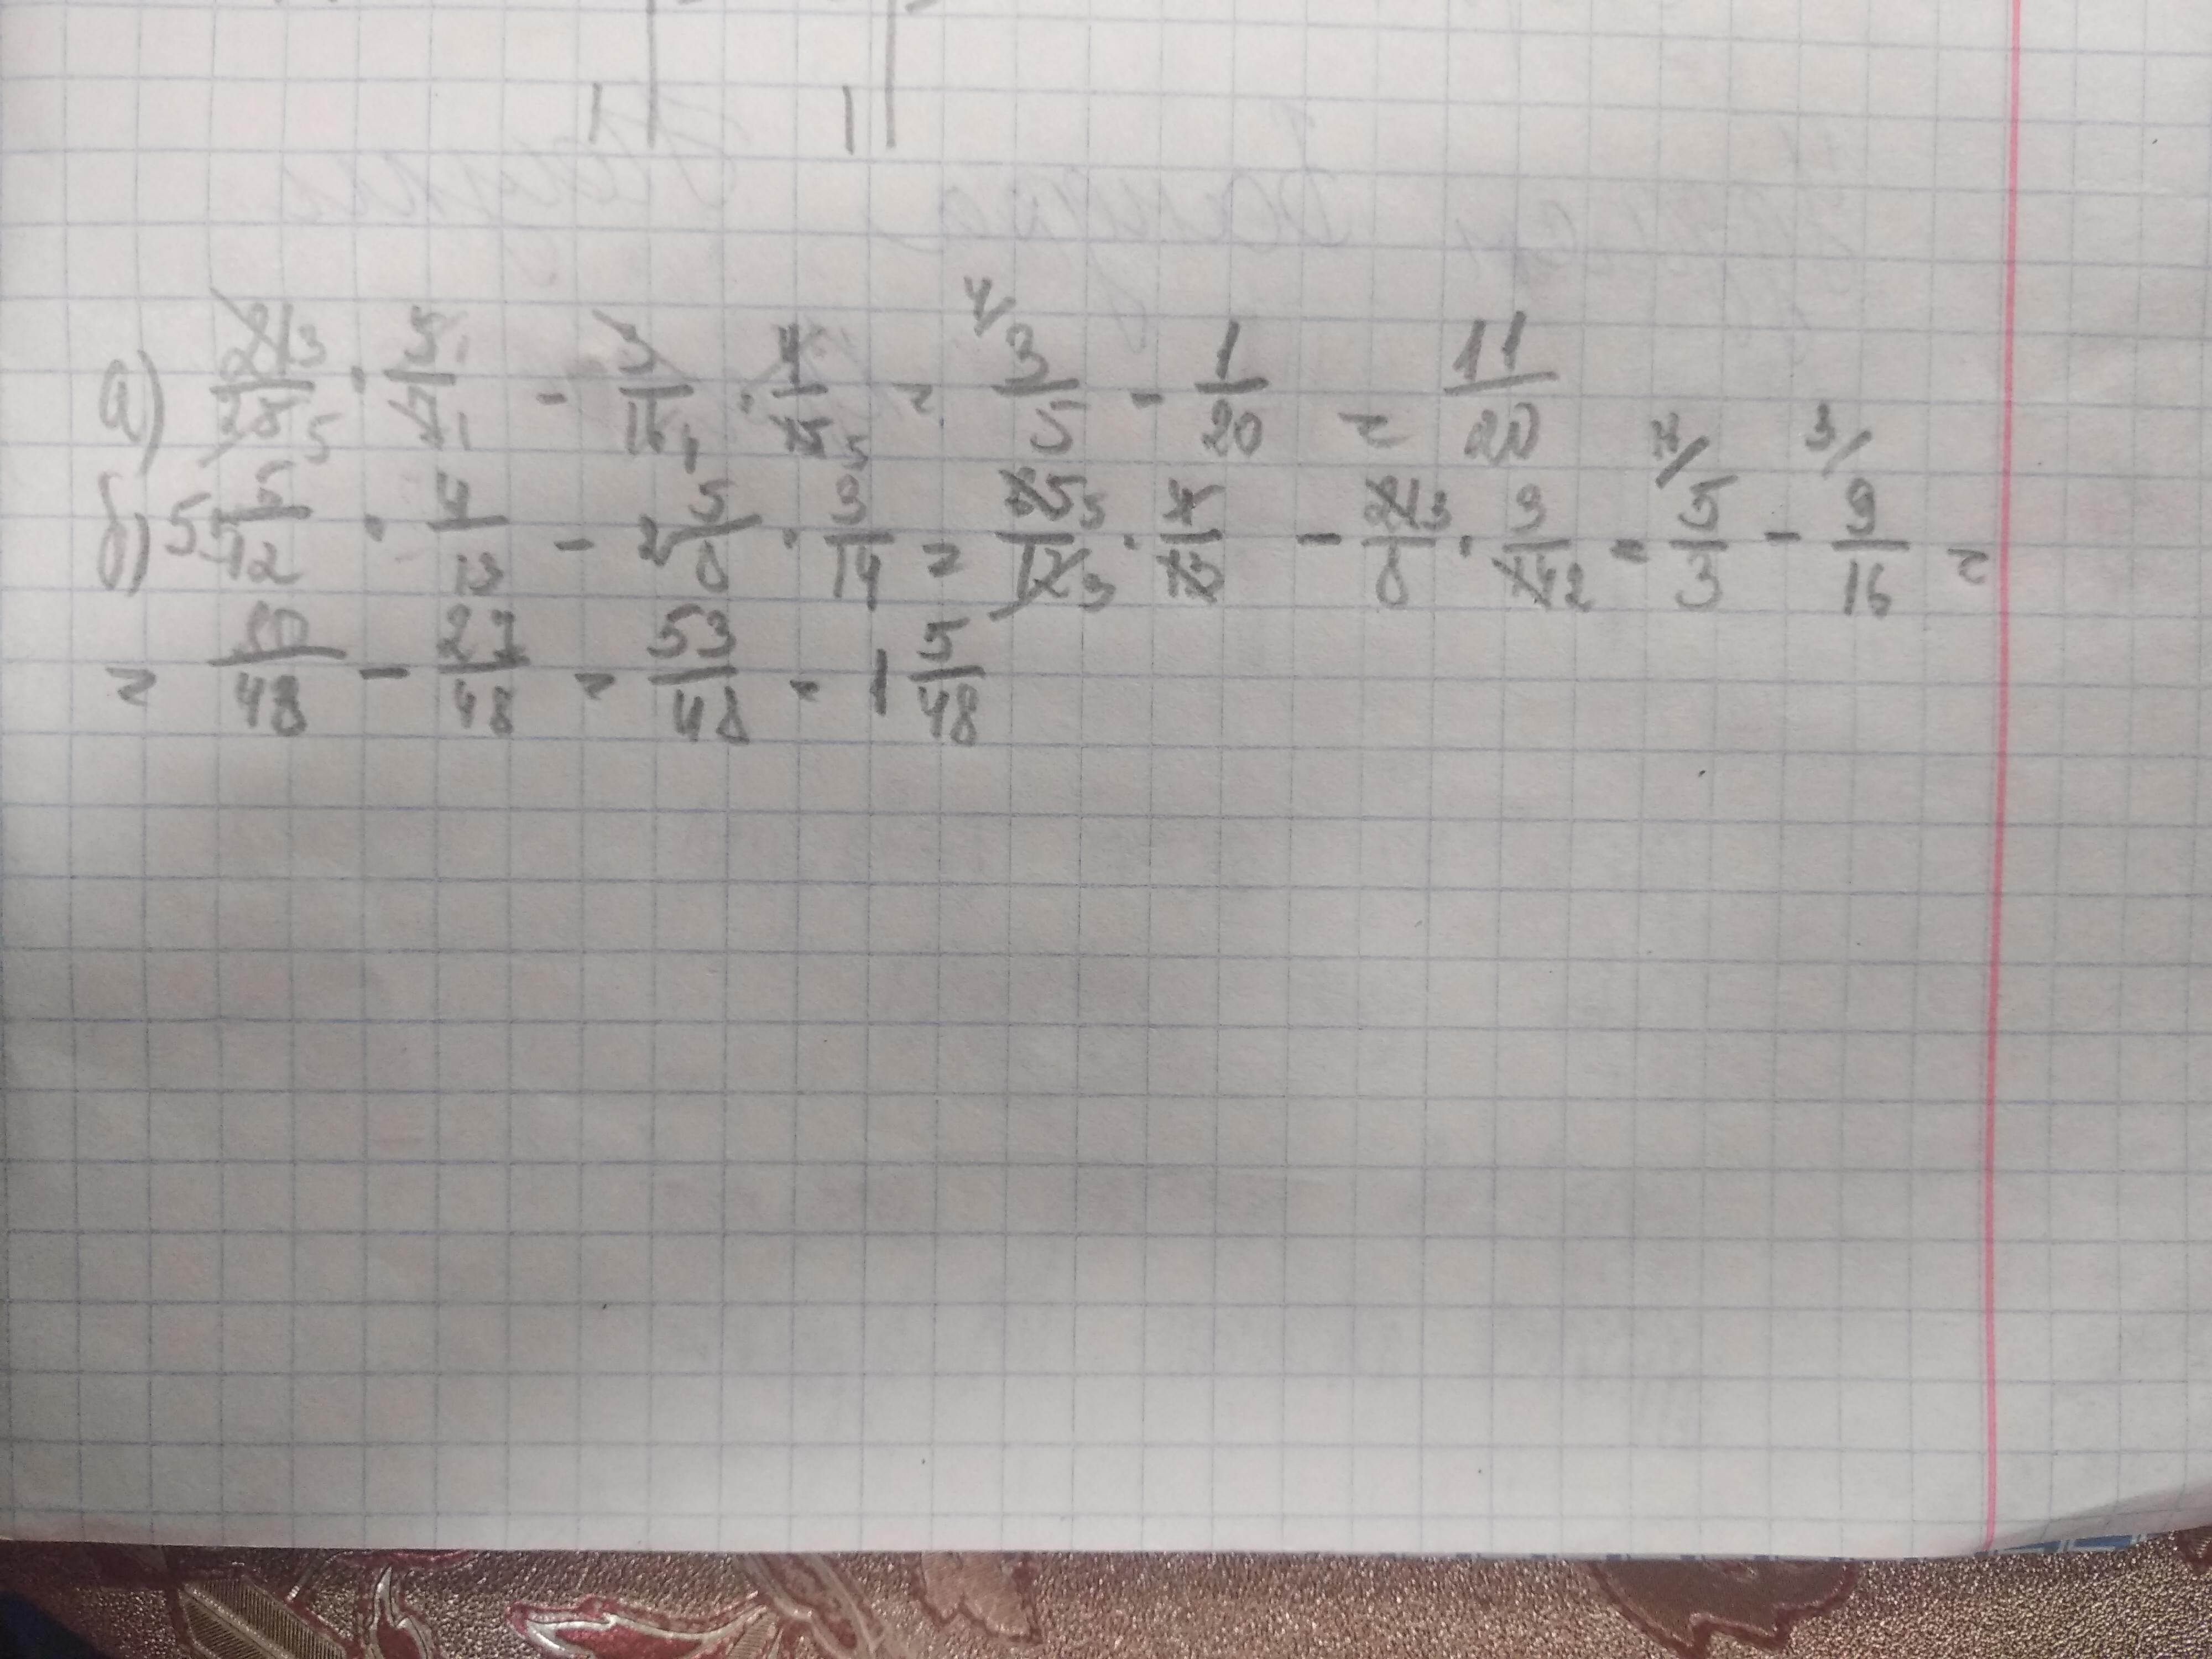 а) 21 3/25 5 · 5 1/7 1 - 3/16 4 · 4/15 5 = 4/ 3/5 - 1/20 = 11/20
б) 5 5/12 · 4/13 - 2 5/8 · 3/14 = 65 5/12 3 · 4/13 - 21 3/8 · 3/14 2 = 5/3 - 3/ 9/16 =
= 80/48 - 27/48 = 53/48 = 1 5/48